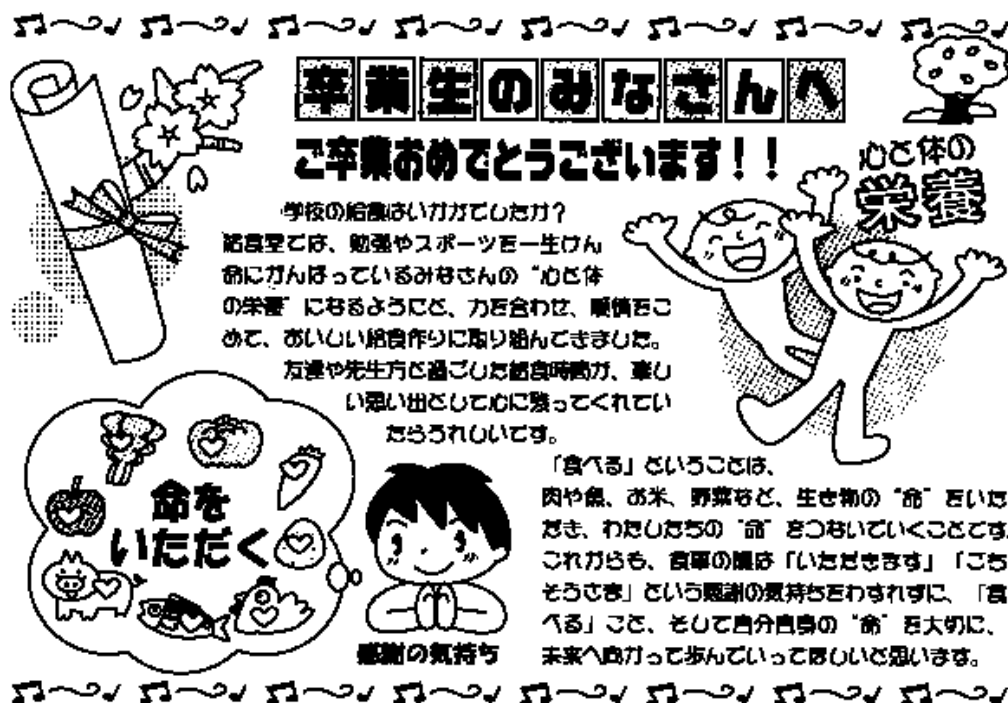 卒業生のみなさんへ
ご卒業おめでとうございます！！
心と体の
栄養
学校の給食はいかがでしたか？
給食室では、勉強やスポーツを一生けん
命にがんばっているみなさんの“心と体
の栄養”になるようにと、力を合わせ、愛情をこ
めて、おいしい給食作りに取り組んできました。
友達や先生方と過ごした給食時間が、楽し
い思い出として心に残ってくれてい
たらうれしいです。
命を
いただく
感謝の気持ち
「食べる」ということは、
肉や魚、お米、野菜など、生き物の“命”をいた
だき、わたしたちの“命”をつないでいくことです。
これからも、食事の際は「いただきます」「ごち
そうさま」という感謝の気持ちをわすれずに、「食
べる」こと、そして自分自身の“命”を大切に、
未来へ向かって歩んでいってほしいと思います。